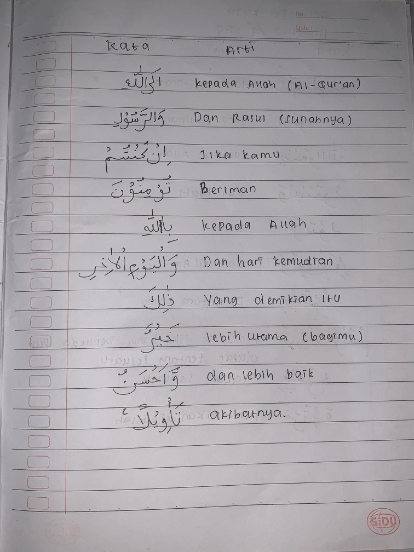 Kata Arti
اِلَى اللّٰهِ kepada Allah (Al-Qur'an)
وَالرَّسُوْلِ Dan Rasul (sunahnya)
اِنْ كُنْتُمْ Jika kamu
تُؤْمِنُوْنَ Beriman
بِاللّٰهِ kepada Allah
وَالْيَوْمِ الْاٰخِرِ Dan hari kemudran
ذٰلِكَ Yang demikian itu
خَيْرٌ lebih utama (bagimu)
وَّاَحْسَنُ dan lebih baik
تَأْوِيْلًا akibatnya.
SIDU